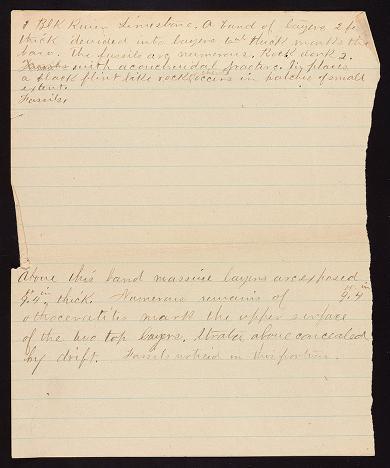 1 Blk River Limestone. A band of layers 2 ft
thick divided into layers thick marks the
base. The fossils are numerous. Rock dark 2.
with a conchoidal fracture. In places
a black flint like rock (chert) occurs in patches of small
extent.
Fossils.
Above this band massive layers are exposed
9.4 in thick. Numerous remains of 9.4
orthoceratites mark the upper surface
of the two top layers. Strata above concealed
by drift. Fossils noticed in this portion.